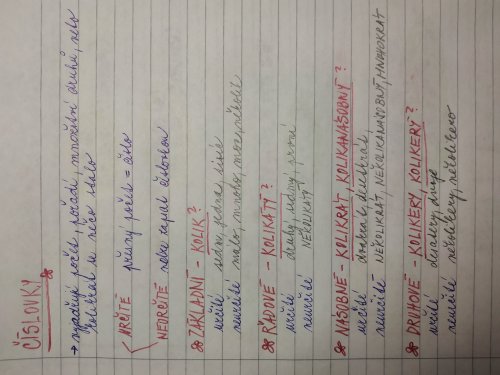 ČÍSLOVKY
→ vyjadřují počet, pořadí, množství druhů, nebo
kolikrát se něco stalo
URČITÉ přesný počet = číslo
NEURČITÉ nelze zapsat číslovkou
ZÁKLADNÍ - KOLIK?
určité sedm, jedna, tisíc
neurčité málo, mnoho, moc, několik
ŘADOVÉ - KOLIKÁTÝ?
určité druhý, sedmý, první
neurčité NĚKOLIKÁTÝ
NÁSOBNÉ - KOLIKRÁT, KOLIKANÁSOBNÝ?
určité dvakrát,
neurčité NĚKOLIKRÁT, NĚKOLIKANÁSOBNÝ, MNOHOKRÁT
DRUHOVÉ - KOLIKERY, KOLIKERÝ?
určité dvoje
neurčité několikery, několikero